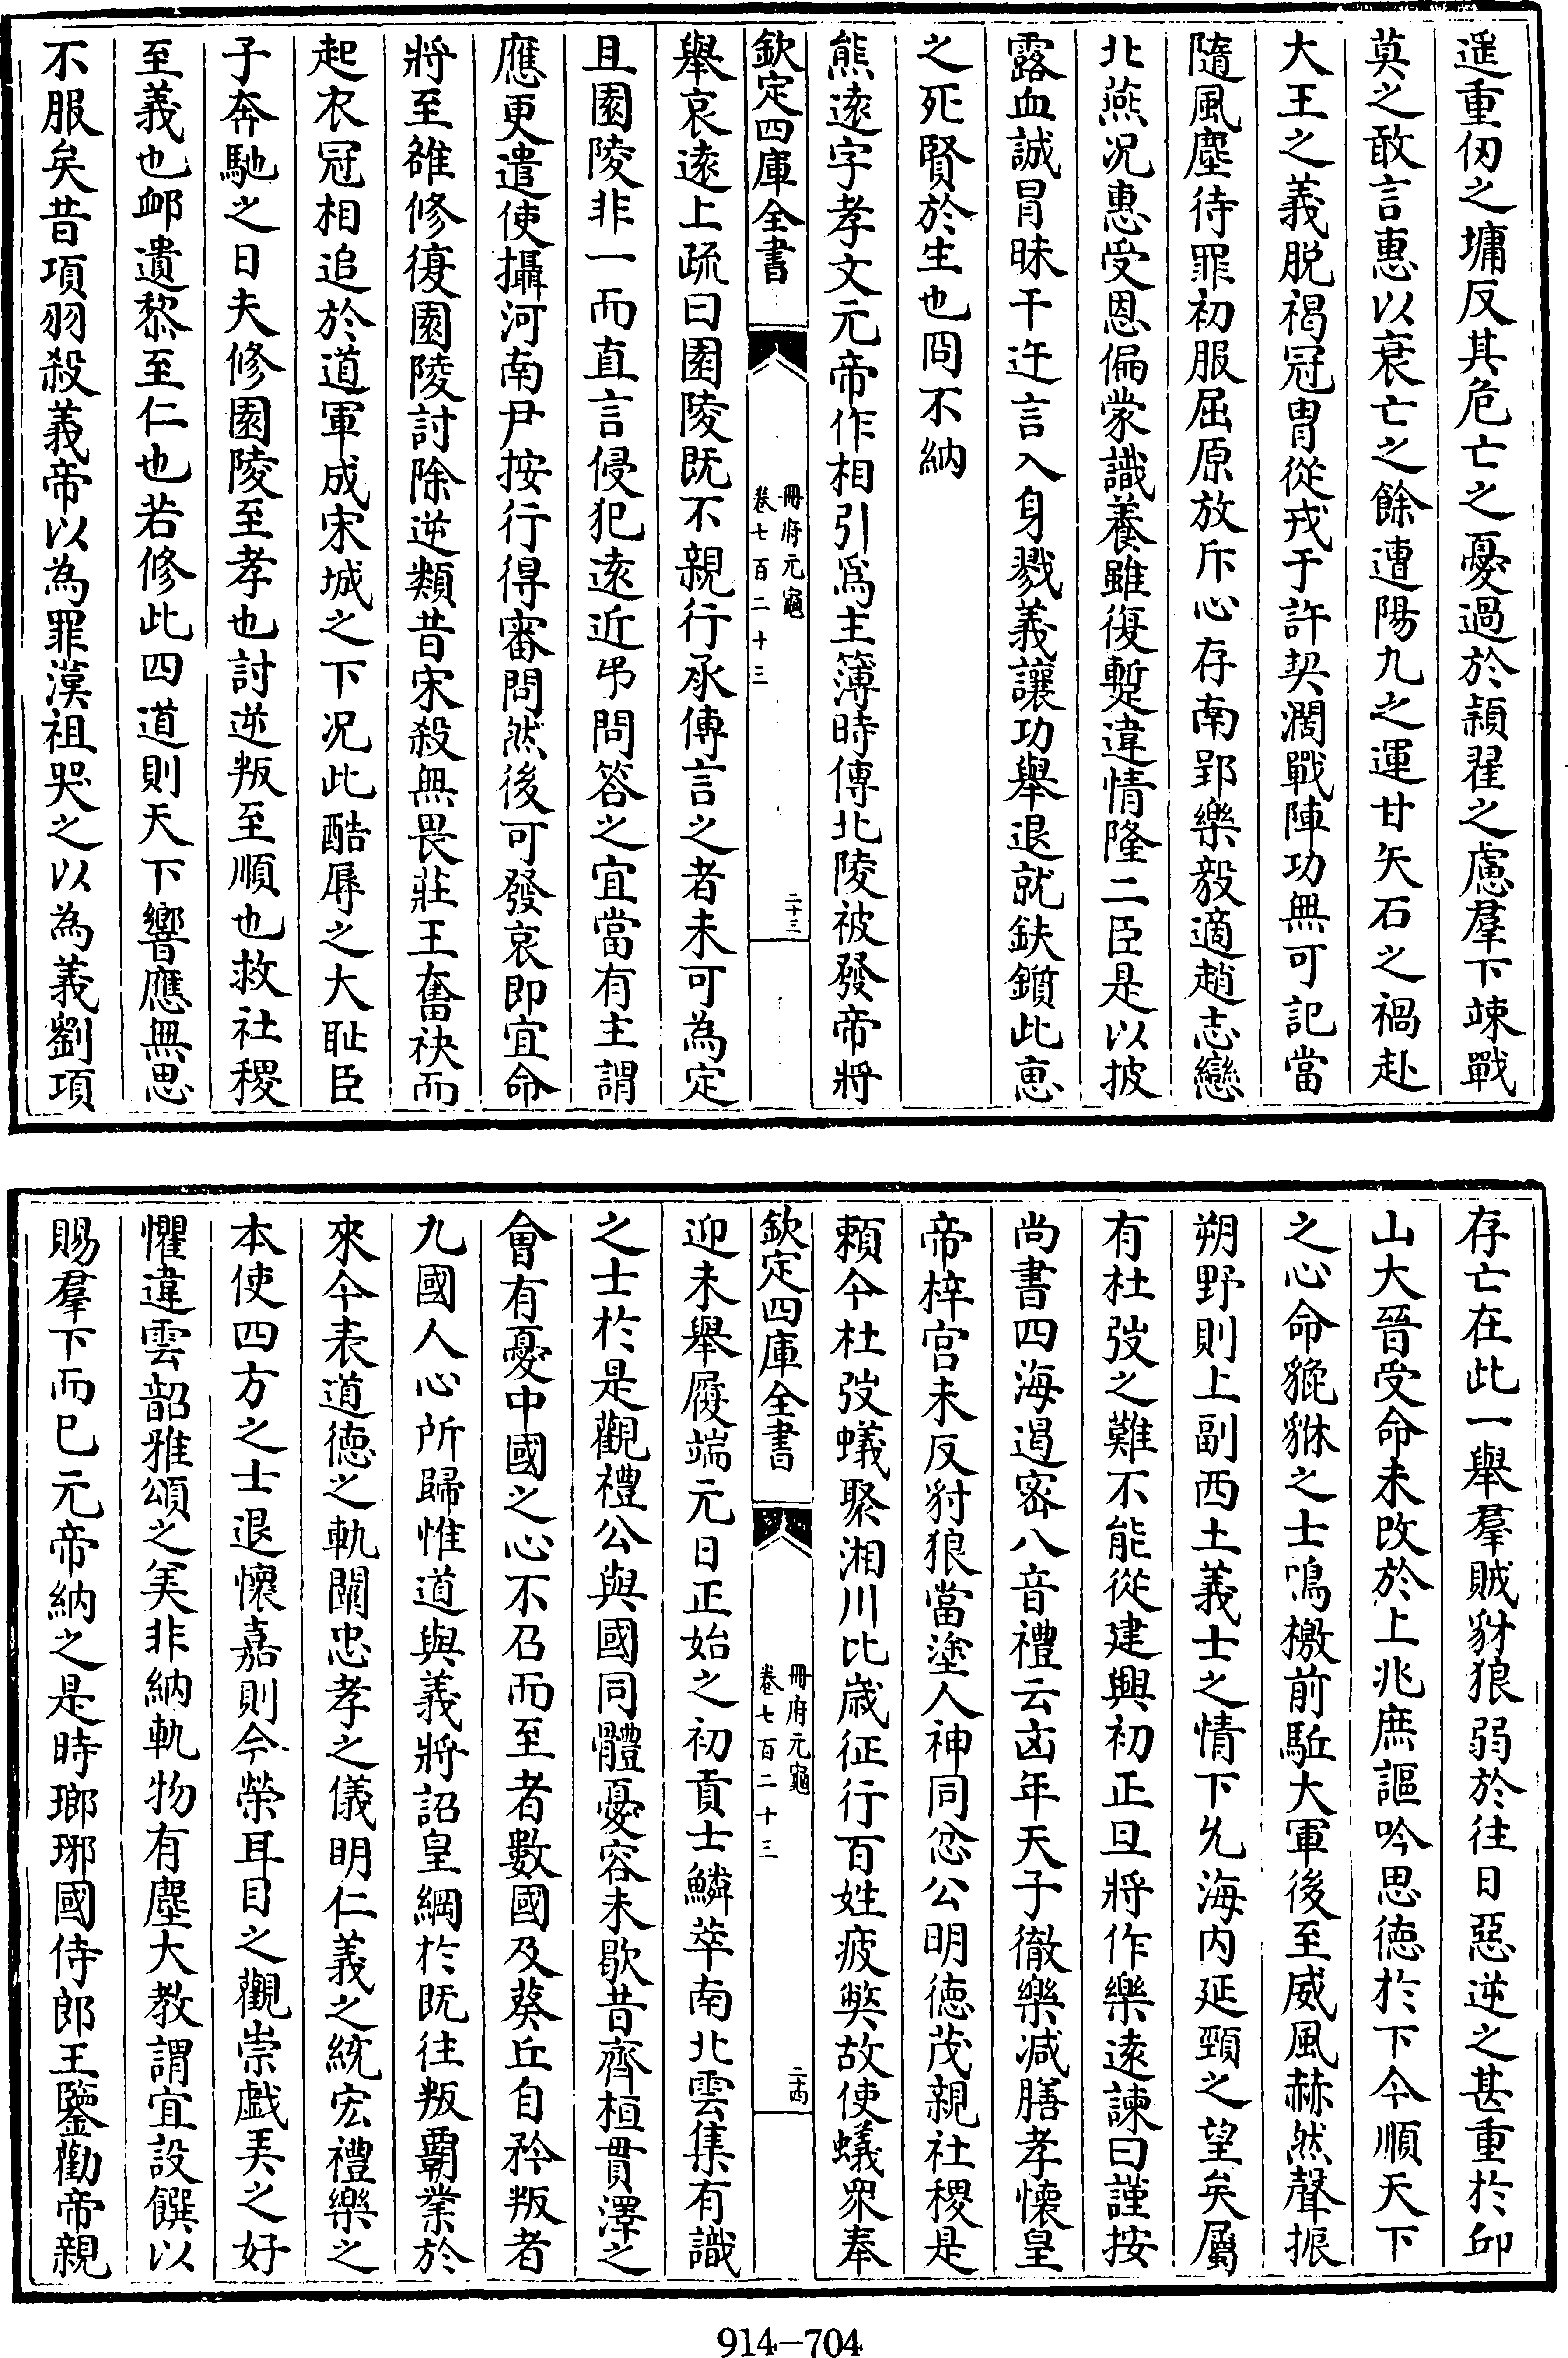 遥重仞之墉反其危亡之憂過於頴翟之慮羣下竦戰
莫之敢言惠以衰亡之餘遭陽九之運甘矢石之禍赴
大王之義脱褐冠胄從戎于許契濶戰陣功無可記當
隨風塵待罪初服屈原放斥心存南郢樂毅適趙志戀
北燕况惠受恩偏蒙識養雖復蹔違情隆二臣是以披
露血誠冒昧干迕言入身戮義讓功舉退就鈇鑕此恵
之死賢於生也冏不納
熊逺字孝文元帝作相引爲主簿時傳北陵被發帝將
欽定四庫全書
冊府元龜
卷七百二十三
二十三
舉哀逺上疏曰園陵既不親行承傳言之者未可為定
且園陵非一而直言侵犯逺近弔問答之宜當有主謂
應更遣使攝河南尹按行得審問然後可發哀即宜命
將至雒修復園陵討除逆類昔宋殺無畏莊王奮袂而
起衣冠相追於道軍成宋城之下况此酷辱之大耻臣
子奔馳之日夫修園陵至孝也討逆叛至順也救社稷
至義也䘏遺黎至仁也若修此四道則天下響應無思
不服矣昔項羽殺義帝以為罪漢祖哭之以為義劉項
存亡在此一舉羣賊豺狼弱於往日惡逆之甚重於卭
山大晉受命未改於上兆庶謳吟思徳於下今順天下
之心命貔貅之士鳴檄前駈大軍後至威風赫然聲振
朔野則上副西土義士之情下允海内延頸之望矣屬
有杜弢之難不能從建興初正旦將作樂逺諫曰謹按
尚書四海遏密八音禮云凶年天子徹樂減膳孝懷皇
帝梓宫未反豺狼當塗人神同忿公明徳茂親社稷是
頼今杜弢蟻聚湘川比歳征行百姓疲弊故使蟻衆奉
欽定四庫全書
冊府元龜
卷七百二十三
二十四
迎未舉履端元日正始之初貢士鱗萃南北雲集有識
之士於是觀禮公與國同體憂容未歇昔齊桓貫澤之
會有憂中國之心不召而至者數國及葵丘自矜叛者
九國人心所歸惟道與義將詔皇綱於既往叛覇業於
來今表道徳之軌闡忠孝之儀明仁義之統宏禮樂之
本使四方之士退懷嘉則今榮耳目之觀崇戲美之好
懼違雲韶雅頌之美非納軌物有塵大教謂宜設饌以
賜羣下而巳元帝納之是時瑯琊國侍郎王鑒勸帝親
914-704